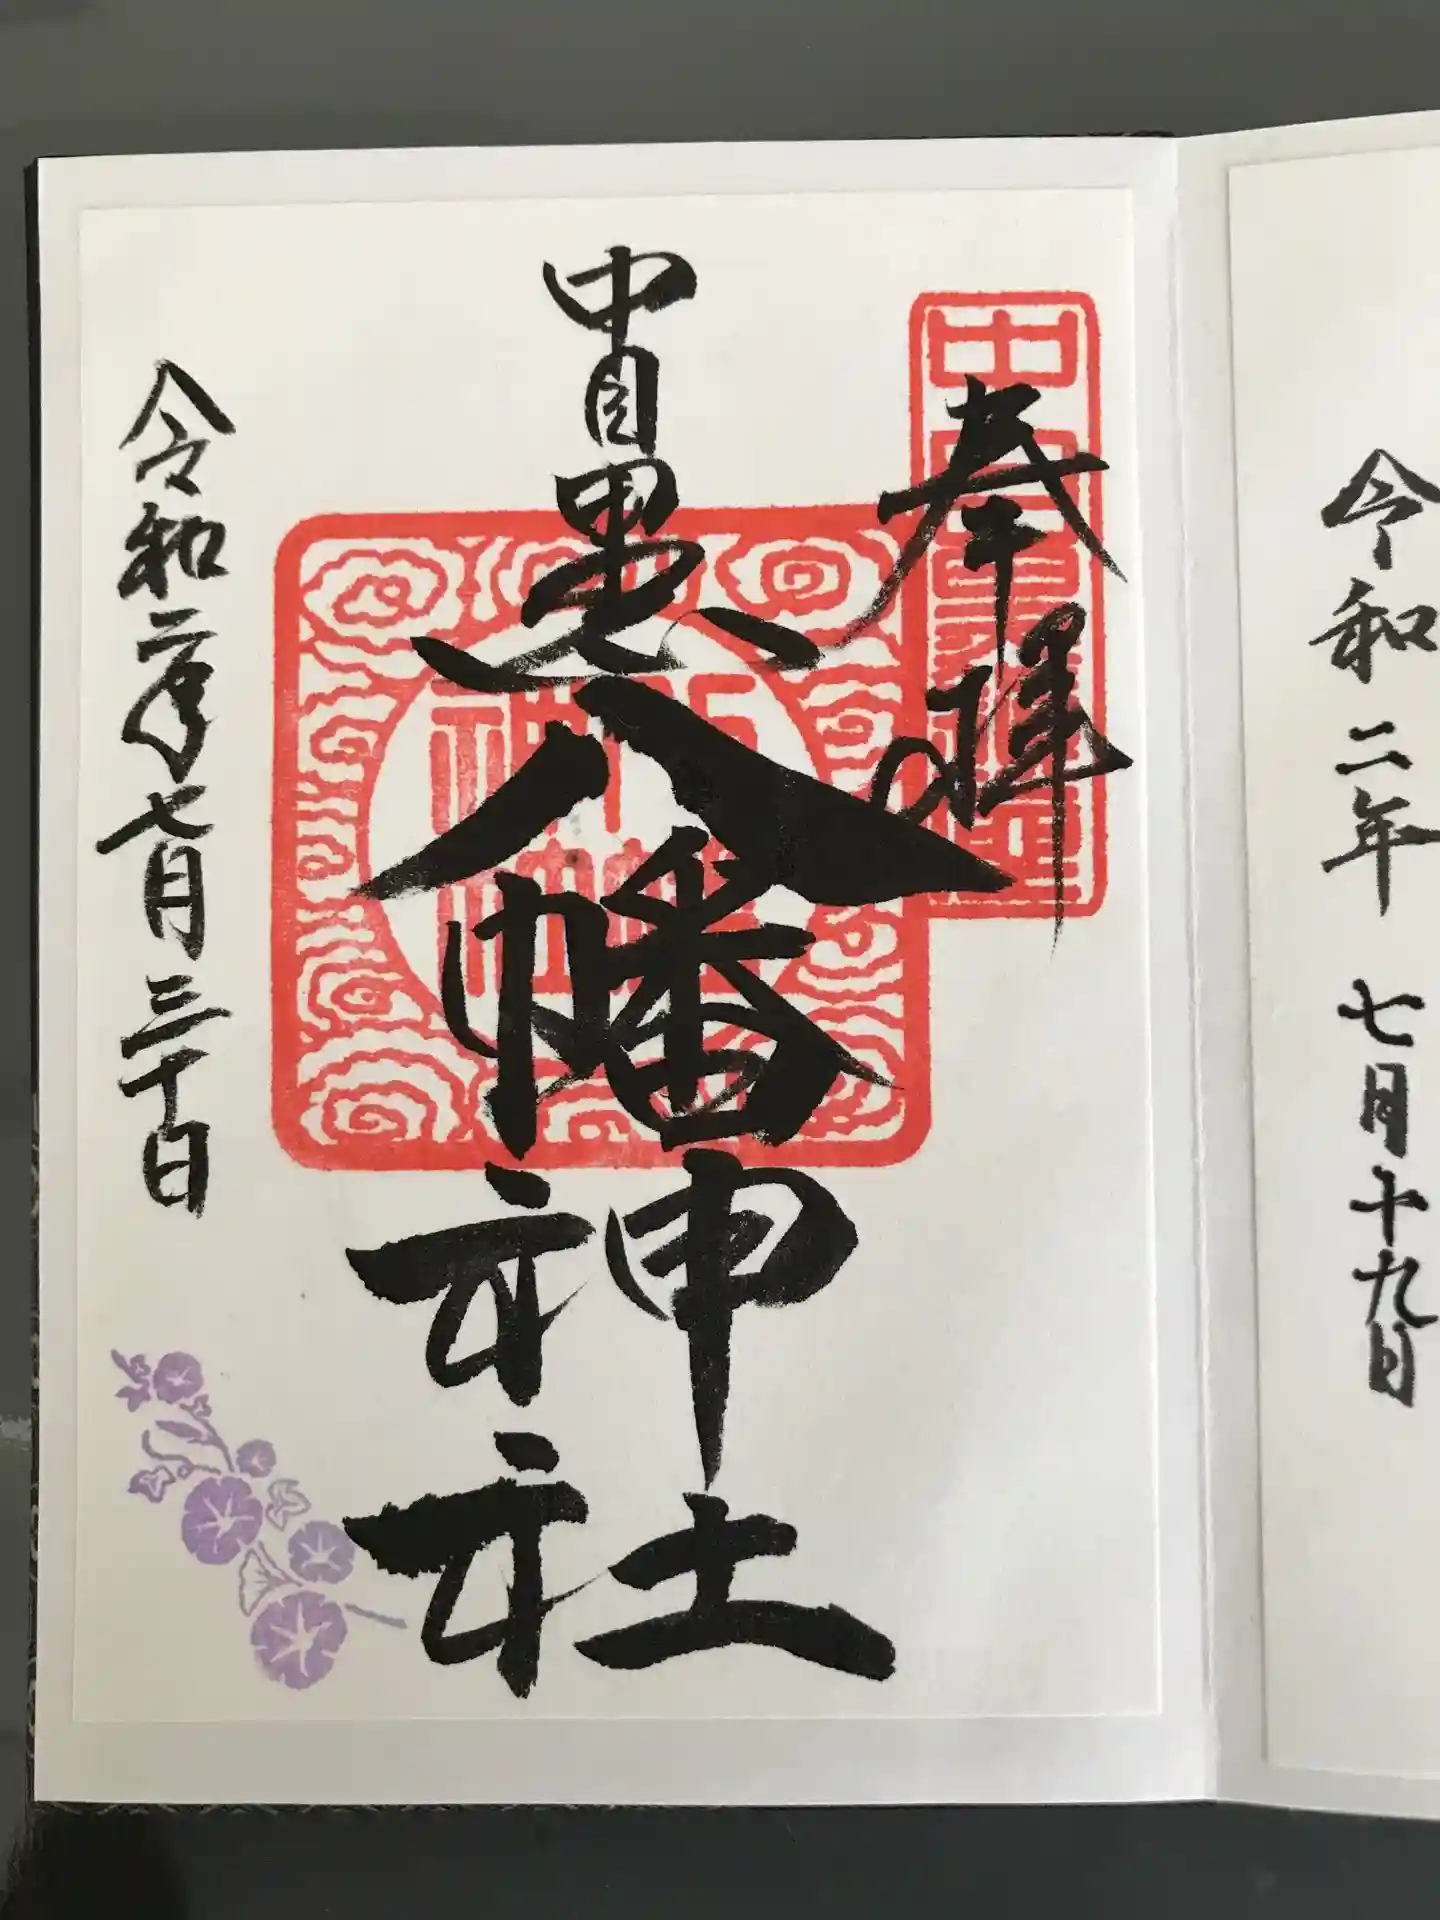 令和二年七月十九日
奉拝
中目黒八幡神社
令和二年七月三十日